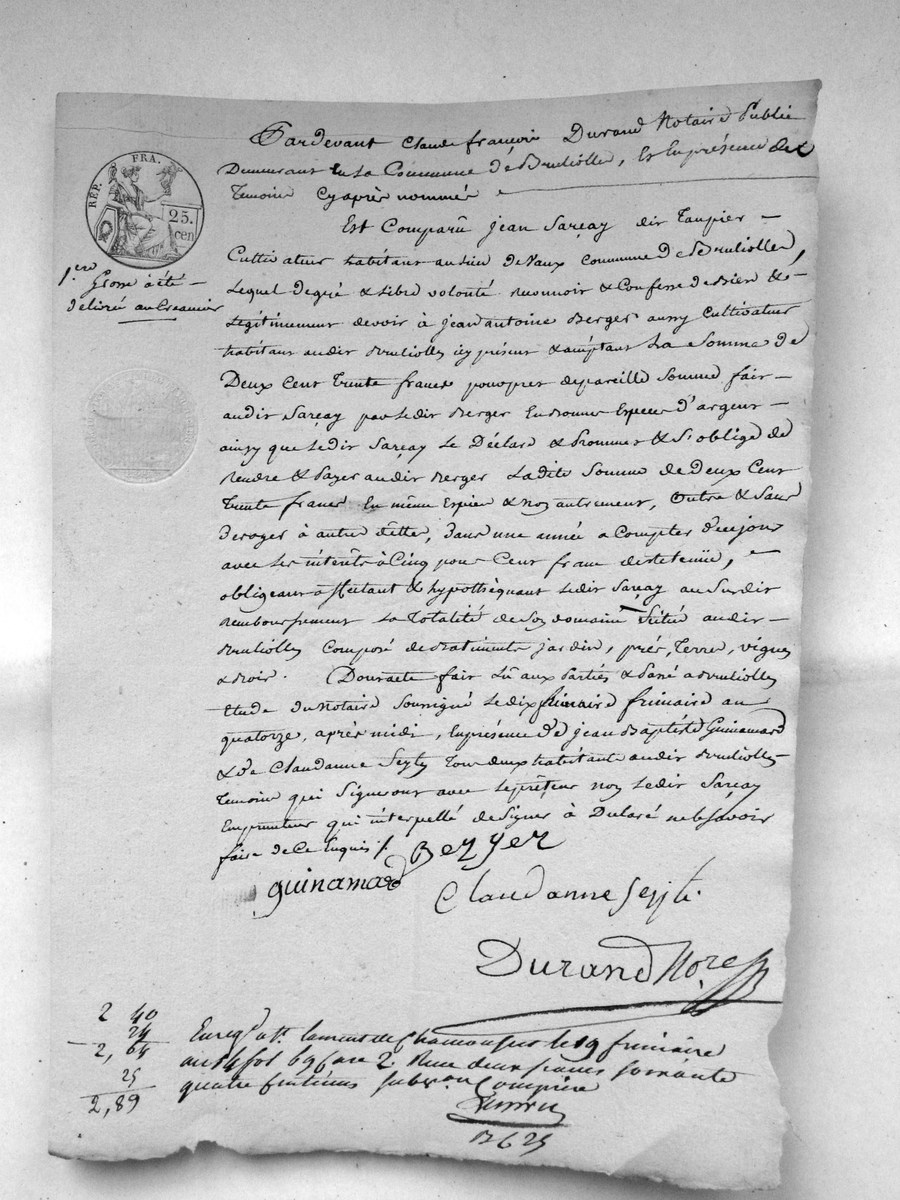 Pardevant Claude françois Durand Notaire Public
Demeurant en La Commune de Brulioles, Et En présence des
Temoins Cyaprès nommés
RÉP. FRA.
25.
cen
Est Comparû jean Sarçay dit Taupier
Cultivateur habitant au Lieu de Vaux Commune de Bruliolles,
1.ere Grosse à été
délivré au Créancier
Lequel de gré & Libre volonté reconnoit & Confesse de Bien &
Légitimement devoir à jean antoine Berger aussy Cultivateur
habitant audit Bruliolles icy présent & acceptant La Somme de
Deux Cent Trente francs pour prêt de pareille Somme fait
audit Sarçay par Ledit Berger En Bonnes Especes d'argent
ainsy que Ledit Sarçay Le Déclare & Promet & S'oblige de
Rendre & Payer audit Berger Ladite Somme de Deux Cent
Trente francs En même Espèce & non autrement, Outre & Sans
Deroger à autre dette, dans une année a Compter de ce jour
avec Les intérêts à Cinq pour Cent franc de retenüe,
obligeant affectant & hypothèquant Ledit Sarçay au Susdit
Remboursement La Totalité de Son domaine Sitüé audit
Bruliolles Composé de Batiments jardin, prés, Terres, vignes
& Bois. Dont acte fait Lû aux Parties & Passé a Bruliolles
Etude du Notaire Soussigné Le dix frimaire an
quatorze, après midi, En présence de jean Baptiste Guinamard
& de Claudanne Seytz Tous deux habitants audit Bruliolles
Temoins qui Signeront avec Le prêteur non Ledit Sarçay
Emprunteur qui interpellé de Signer à Déclaré ne le Savoir
faire de Ce Enquis /.
Berger
guinamard
Claudanne
Durand No.re
2 40
24
2, 64
25
2,89
Enreg.é à S.t Laurent de Chamousset le 19 frimaire
an 14 fol 69 Case 2. Reçu deux francs soixante
quatre Centimes subv.on Comprise